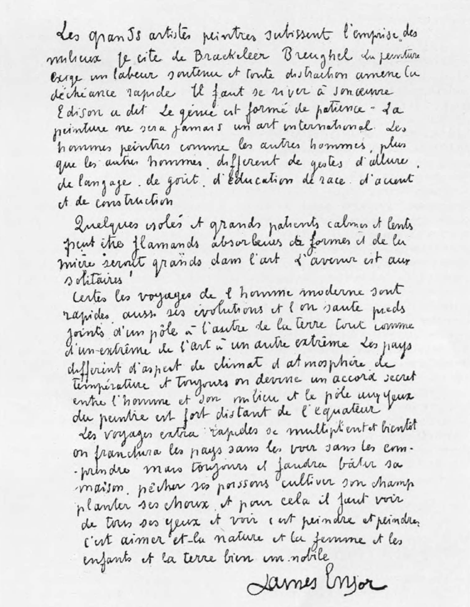 Les grands artistes peintres subissent l'emprise des
milieux Je cite de Braekeleer Breughel La peinture
exige un labeur soutenu et toute distraction amène la
déchéance rapide Il faut se river à son œuvre
Edison a dit Le génie est formé de patience - La
peinture ne sera jamais un art international Les
hommes peintres comme les autres hommes, plus
que les autres hommes, different de gestes d'allure,
de langage, de goût, d'éducation de race, d'accent
et de construction
Quelques isolés et grands patients calmes et lents
peut être flamands absorbeurs de formes et de lu
mière seront grands dans l'art L'avenir est aux
solitaires!
Certes les voyages de l'homme moderne sont
rapides, aussi ses évolutions et l'on saute pieds
joints d'un pôle à l'autre de la terre tout comme
d'un extrême de l'art à un autre extrême Les pays
different d'aspect de climat d'atmosphère de
température et toujours on devine un accord secret
entre l'homme et son milieu et le pôle aux yeux
du peintre est fort distant de l'équateur
Les voyages extra rapides se multiplient et bientôt
on franchira les pays sans les voir sans les com-
-prendre mais toujours il faudra bâtir sa
maison, pêcher ses poissons cultiver son champ
planter ses choux, et pour cela il faut voir
de tous ses yeux et voir c'est peindre et peindre,
c'est aimer et la nature et la femme et les
enfants et la terre bien ... nobile
James Ensor